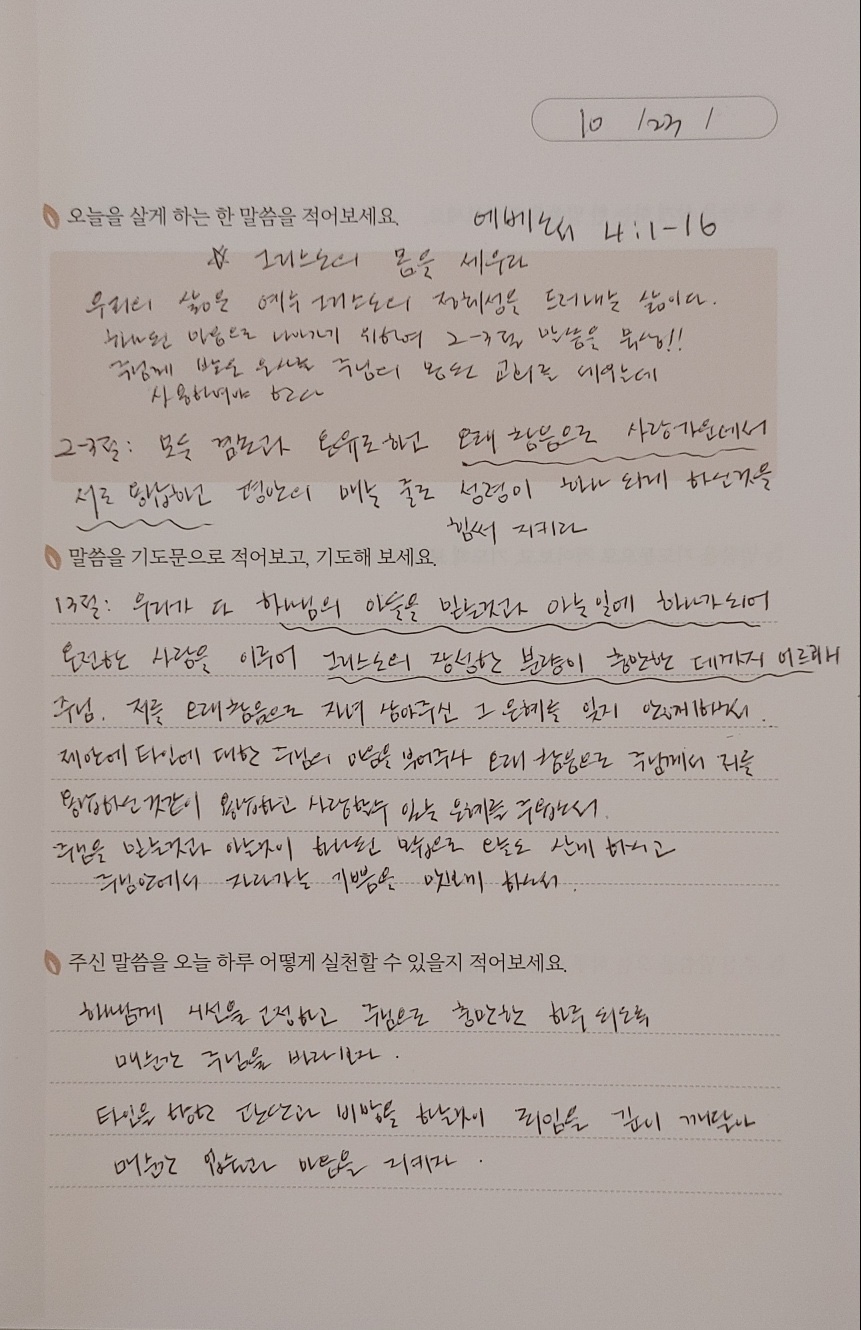 10 / 23 /
오늘을 살게 하는 한 말씀을 적어보세요. 에베소서 4:1-16
☆ 그리스도의 몸을 세우라
우리의 삶은 예수 그리스도의 정체성을 드러내는 삶이다.
하나된 마음으로 나아가기 위하여 2-3절 말씀을 묵상!!
주님께 받은 은사로 주님의 몸된 교회를 세우는데
사용하여야 한다
2-3절: 모든 겸손과 온유로 하고 오래 참음으로 사랑가운데서
서로 용납하고 평안의 매는 줄로 성령이 하나 되게 하신것을
힘써 지키라
말씀을 기도문으로 적어보고, 기도해 보세요.
13절: 우리가 다 하나님의 아들을 믿는것과 아는일에 하나가되어
온전한 사람을 이루어 그리스도의 장성한 분량이 충만한 데까지 이르리니
주님. 저를 오래참음으로 자녀 삼아주신 그 은혜를 잊지 않게하소서.
제안에 타인에 대한 주님의 마음을 부어주사 오래 참음으로 주님께서 저를
용납하신것같이 용납하고 사랑할수 있는 은혜를 주옵소서.
주님을 믿는것과 아는것이 하나된 믿음으로 오늘도 살게 하시고
주님안에서 자라가는 기쁨을 맛보게 하소서.
주신 말씀을 오늘 하루 어떻게 실천할 수 있을지 적어보세요.
하나님께 시선을 고정하고 주님으로 충만한 하루 되도록
매순간 주님을 바라보자.
타인을 향한 판단과 비방을 하는것이 죄임을 깊이 깨달아
매순간 입술과 마음을 지키자.